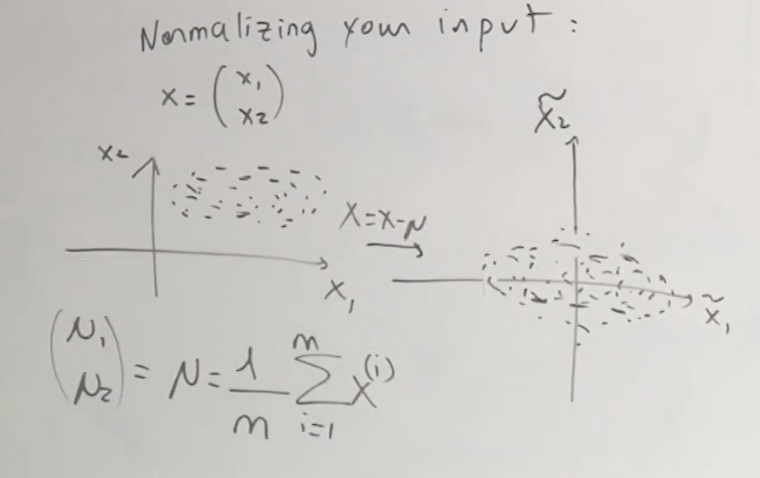 Normalizing your input:
x = (x₁
x₂)
x₂
x₁
x = x - μ
x̃₂
x̃₁
(μ₁
μ₂) = μ = 1/m ∑ᵢ₌₁ᵐ x⁽ⁱ⁾